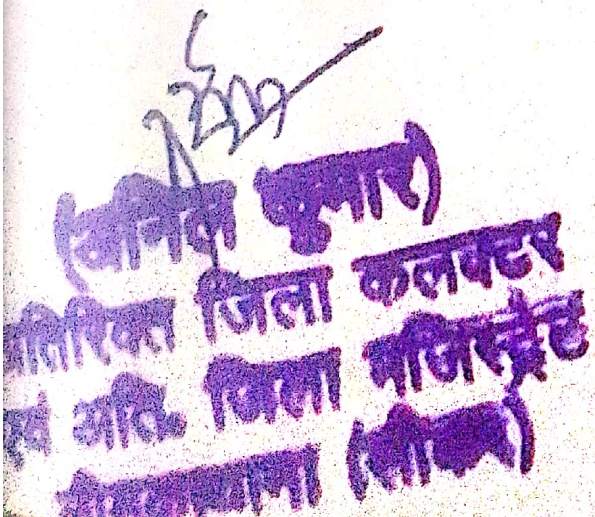 (अनिल कुमार)
अतिरिक्त जिला कलक्टर
एवं अति. जिला मजिस्ट्रेट
(सीकर)